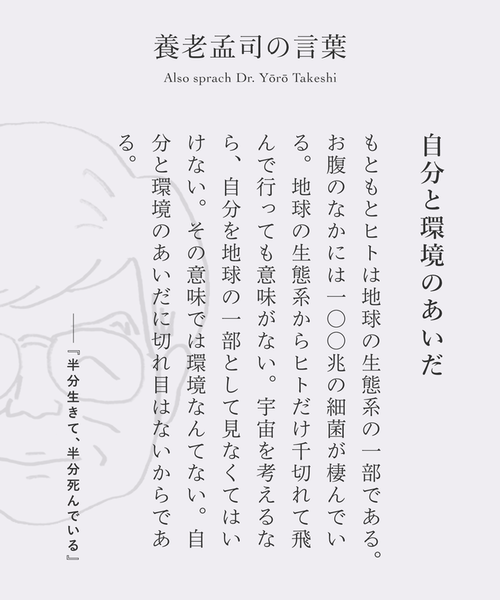 養老孟司の言葉
Also sprach Dr. Yōrō Takeshi
自分と環境のあいだ
もともとヒトは地球の生態系の一部である。
お腹のなかには一〇〇兆の細菌が棲んでい
る。地球の生態系からヒトだけ千切れて飛
んで行っても意味がない。宇宙を考えるな
ら、自分を地球の一部として見なくてはい
けない。その意味では環境なんてない。自
分と環境のあいだに切れ目はないからであ
る。
——『半分生きて、半分死んでいる』